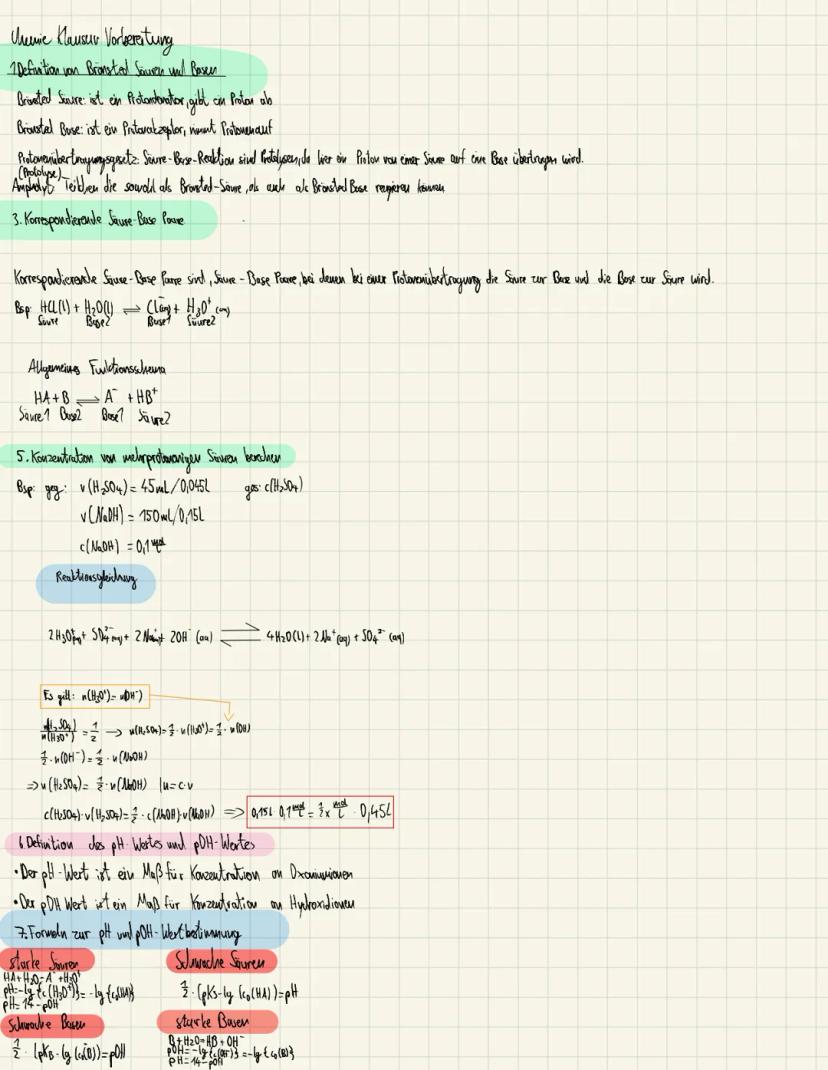 Chemie Klausur Vorbereitung
1.Definition von Brønsted Säuren und Basen
Brönsted Säure: ist ein Protonendonator, gibt ein Proton ab
Brönsted Base: ist ein Protonakzeptor, nimmt Protonen auf
Protonenübertragungsgesetz: Säure-Base-Reaktion sind Protolysen, da hier ein Proton von einer Säure auf eine Base übertragen wird.
(Protolyse)
Ampholyt: Teilchen die sowohl als Brönsted-Säure, als auch als Brönsted Base reagieren können
3. Korrespondierende Säure-Base Paare
Korrespondierende Säure-Base Paare sind, Säure-Base Paare, bei denen bei einer Protonenübertragung die Säure zur Base und die Base zur Säure wird.
Bsp: HCl(l) + H₂O(l) ⇌ Cl⁻(aq) + H₃O⁺(aq)
Säure Base2 Base1 Säure2
Allgemeines Funktionsschema
HA + B ⇌ A⁻ + HB⁺
Säure1 Base2 Base1 Säure2
5. Konzentration von mehrprotonigen Säuren berechnen
Bsp: geg: v(H₂SO₄) = 45mL/0,045L ges: c(H₂SO₄)
v(NaOH) = 150mL/0,15L
c(NaOH) = 0,1 mol
Reaktionsgleichung
2H₃O⁺(aq) + SO₄²⁻(aq) + 2Na⁺(aq) + 2OH⁻(aq) ⇌ 4H₂O(l) + 2Na⁺(aq) + SO₄²⁻(aq)
Es gilt: n(H₃O⁺) = n(OH⁻)
n(H₂SO₄)/n(H₃O⁺) = 1/2 → n(H₂SO₄) = 1/2 · n(H₃O⁺) = 1/2 · n(OH)
1/2 · n(OH⁻) = 1/2 · n(NaOH)
⇒ n(H₂SO₄) = 1/2 · n(NaOH) | n = c · v
c(H₂SO₄) · v(H₂SO₄) = 1/2 · c(NaOH) · v(NaOH) ⇒ 0,15L · 0,1 mol/L = 1/2 x mol/L · 0,45L
6.Definition des pH-Wertes und pOH-Wertes
•Der pH-Wert ist ein Maß für Konzentration an Oxoniumionen
•Der pOH Wert ist ein Maß für Konzentration an Hydroxidionen
7.Formeln zur pH und pOH-Wertbestimmung
starke Säuren Schwache Säuren
HA + H₂O = A⁻ + H₃O⁺
pH = -lg{c(H₃O⁺)} = -lg{c₀(HA)} 1/2 · (pKs - lg(c₀(HA)) = pH
pH = 14 - pOH
Schwache Basen starke Basen
B + H₂O = HB + OH⁻
1/2 · (pKB - lg(c₀(B)) = pOH pOH = -lg{c(OH⁻)} = -lg{c₀(B)}
pH = 14 - pOH